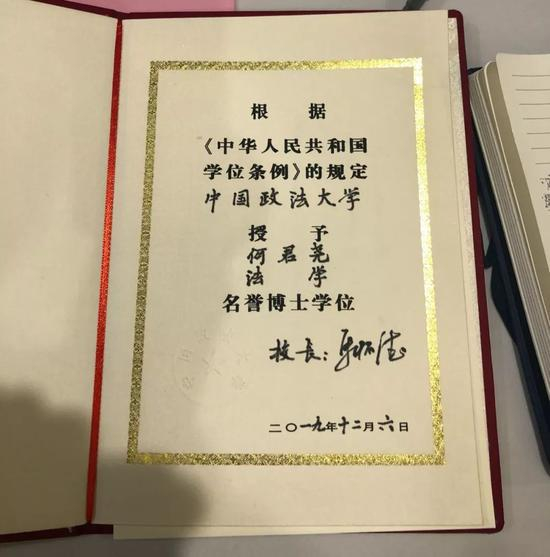 根 据
《中华人民共和国
学位条例》的规定
中国政法大学
授 予
何君尧
法 学
名誉博士学位
校长：
二〇一九年十二月六日